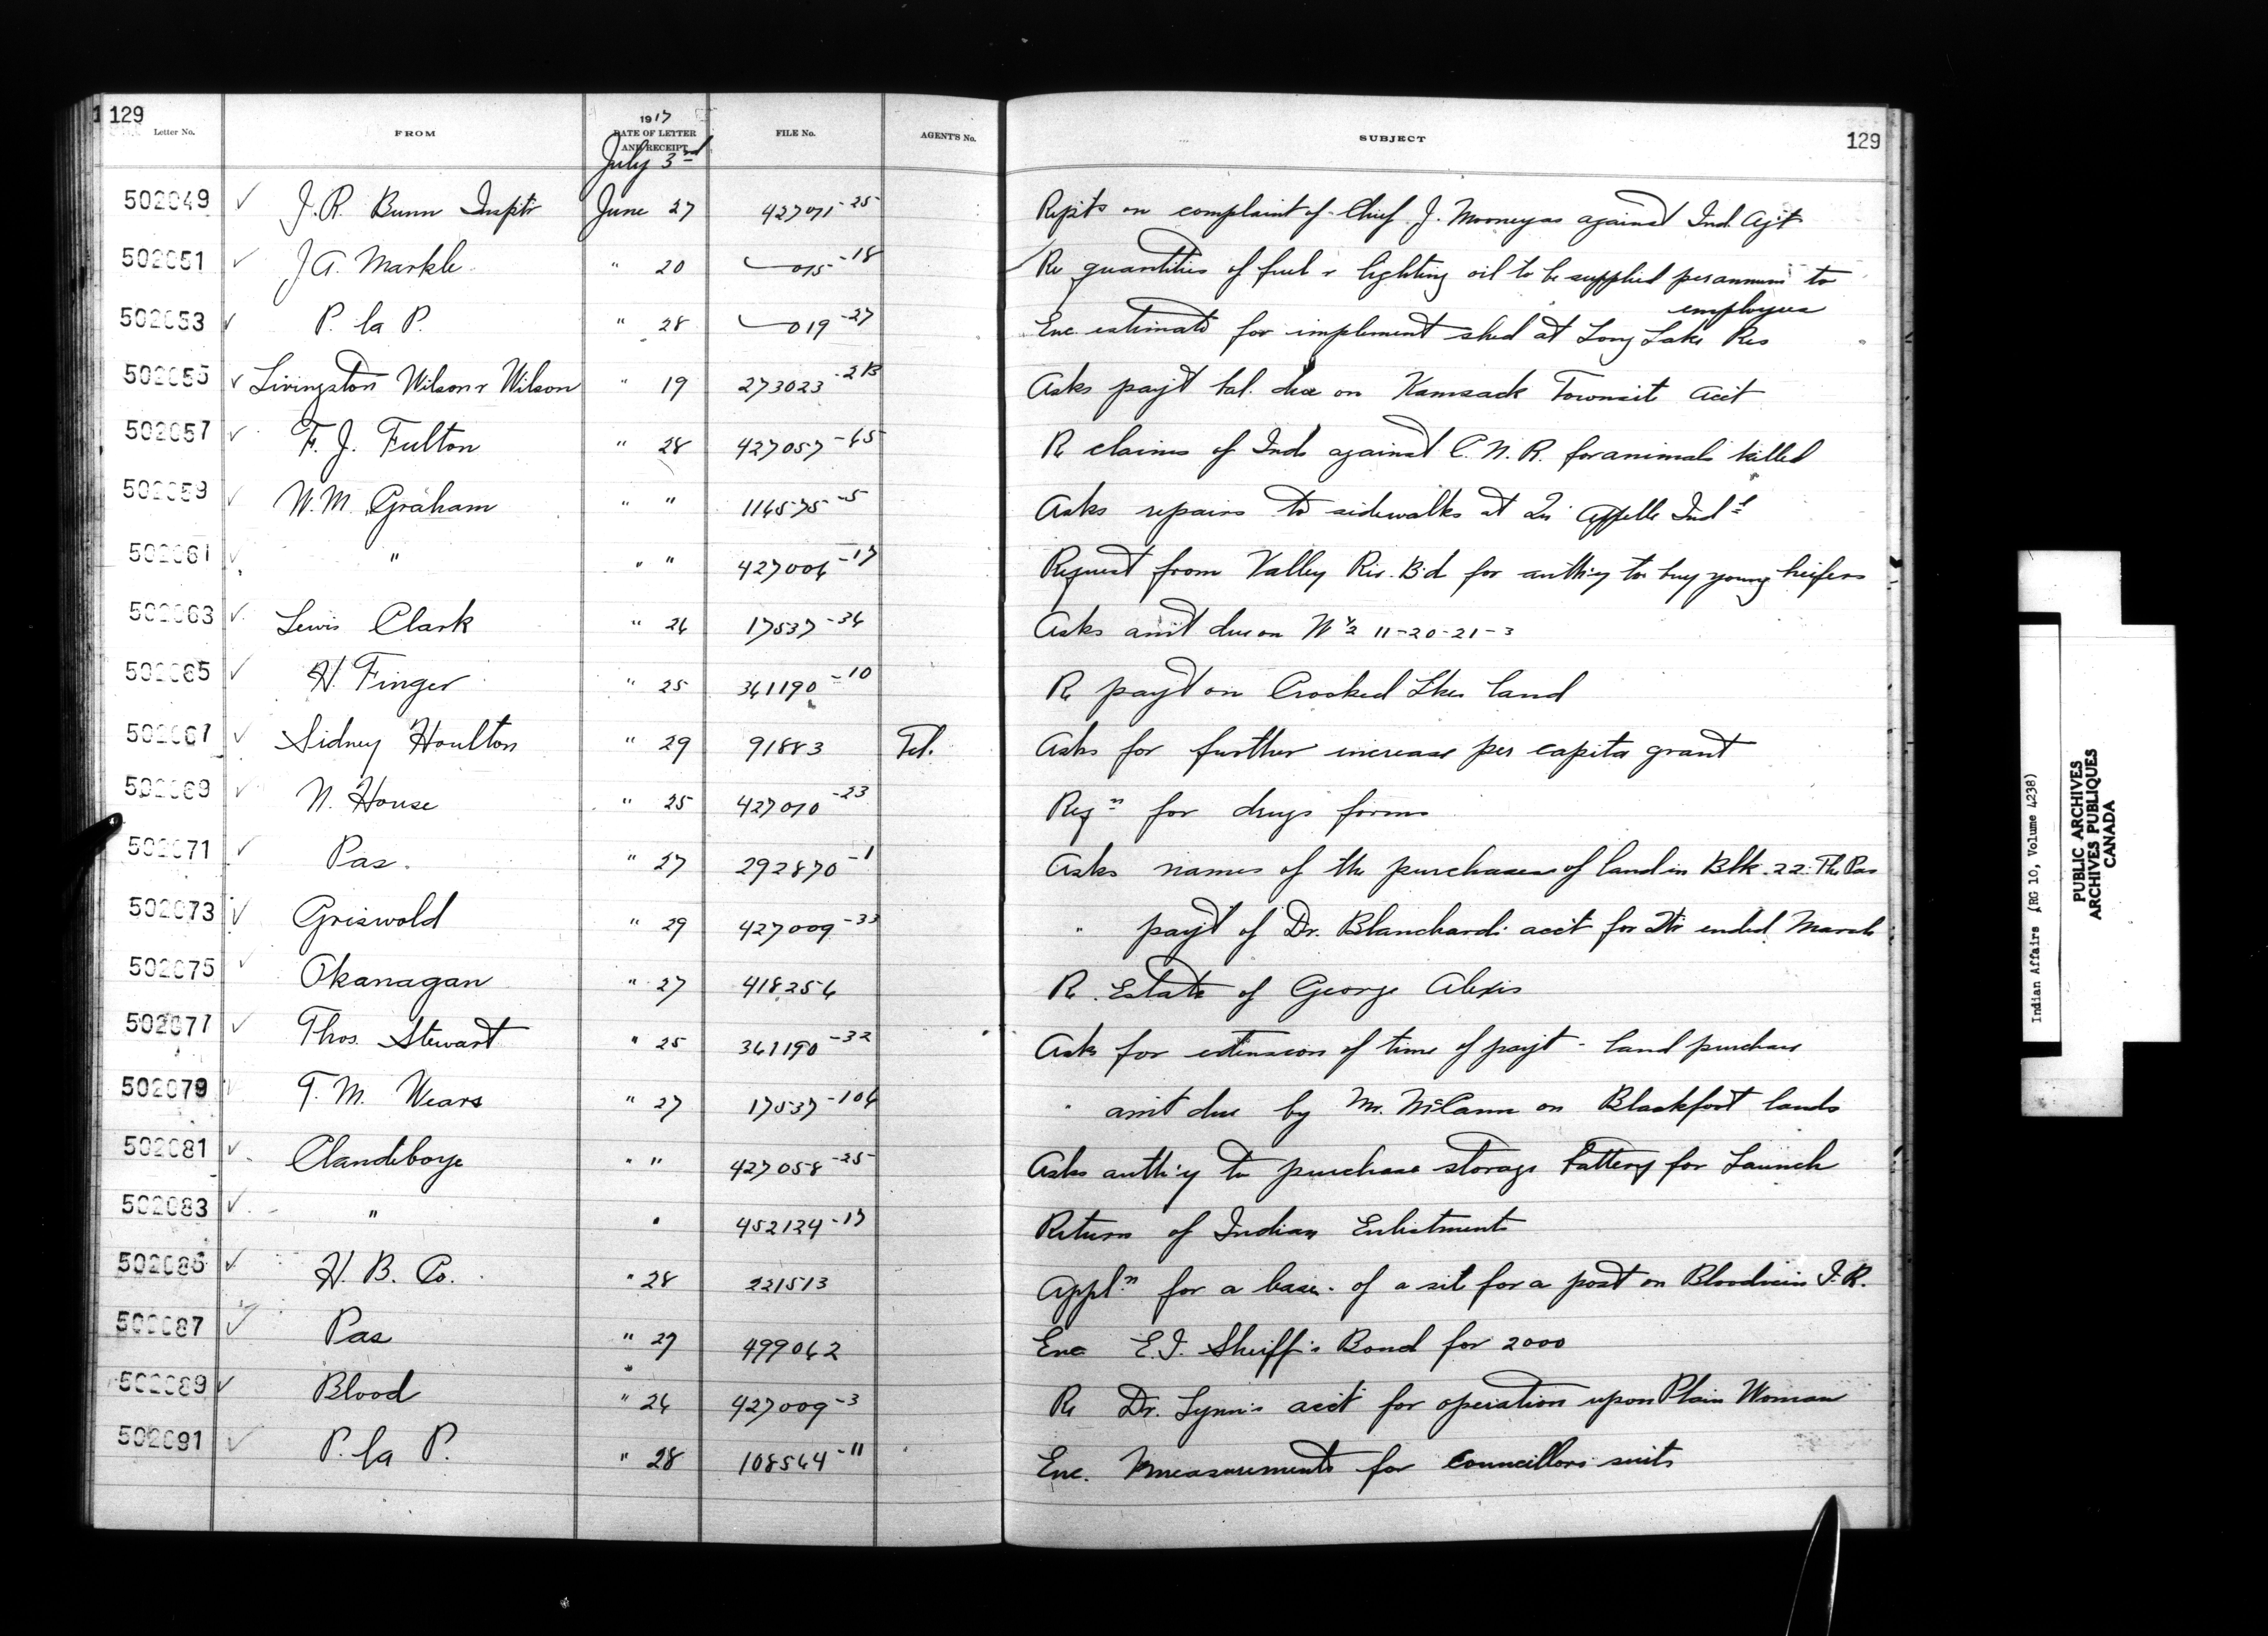 129
Letter No. FROM 1917 DATE OF LETTER AND RECEIPT FILE No. AGENT'S No. SUBJECT 129
July 3rd
502049 ✓ J. R. Bunn Insptr June 27 427071-25 Repts on complaint of Chief J. Mooneyas against Ind. Agt
502051 ✓ J A. Markle " 20 015-18 Re quantities of fuel & lighting oil to be supplied per annum to
employees
502053 ✓ P. la P. " 28 019-27 Enc estimate for implement shed at Long Lake Res
502055 ✓ Livingston Wilson & Wilson " 19 273023-2B Asks pay't bal. due on Kamsack Townsite Acct
502057 ✓ F. J. Fulton " 28 427057-65 Re claims of Inds against C. N. R. for animals killed
502059 ✓ W. M. Graham " " 116575-5 Asks repairs to sidewalks at Qu'Appelle Ind'l
502061 ✓ " " " 427006-17 Request from Valley Riv. B'd for auth'y to buy young heifers
502063 ✓ Lewis Clark " 26 17537-36 Asks am't due on N ½ 11-20-21-3
502065 ✓ H. Finger " 25 361190-10 Re pay't on Crooked Lkes land
502067 ✓ Sidney Houlton " 29 91883 Tel. Asks for further increase per capita grant
502069 ✓ N. House " 25 427010-23 Reqn for drugs forms
502071 ✓ Pas. " 27 292870-1 Asks names of the purchasers of land in Blk. 22. The Pas
502073 ✓ Griswold " 29 427009-33 " pay't of Dr. Blanchard's acc't for Qtr ended March
502075 ✓ Okanagan " 27 418256 Re. Estate of George Alexis
502077 ✓ Thos. Stewart " 25 361190-32 Ask for extension of time of pay't - land purchase
502079 T. M. Wears " 27 17537-106 " am't due by Mr. McCann on Blackfoot lands
502081 ✓ Clandeboye " " 427058-25 Asks auth'y to purchase storage battery for Launch
502083 ✓ " " 452124-17 Return of Indian Enlistments
502085 ✓ H. B. Co. " 28 221513 Appln for a lease of a site for a post on Bloodvein I. R.
502087 ✓ Pas " 27 499062 Enc E. J. Sheriff's Bond for 2000
502089 ✓ Blood " 26 427009-3 Re Dr. Lynn's acc't for operation upon Plain Woman
502091 ✓ P. la P. " 28 108564-11 Enc. Measurements for Councillors suits
Indian Affairs (RG 10, Volume 4238)
PUBLIC ARCHIVES
ARCHIVES PUBLIQUES
CANADA